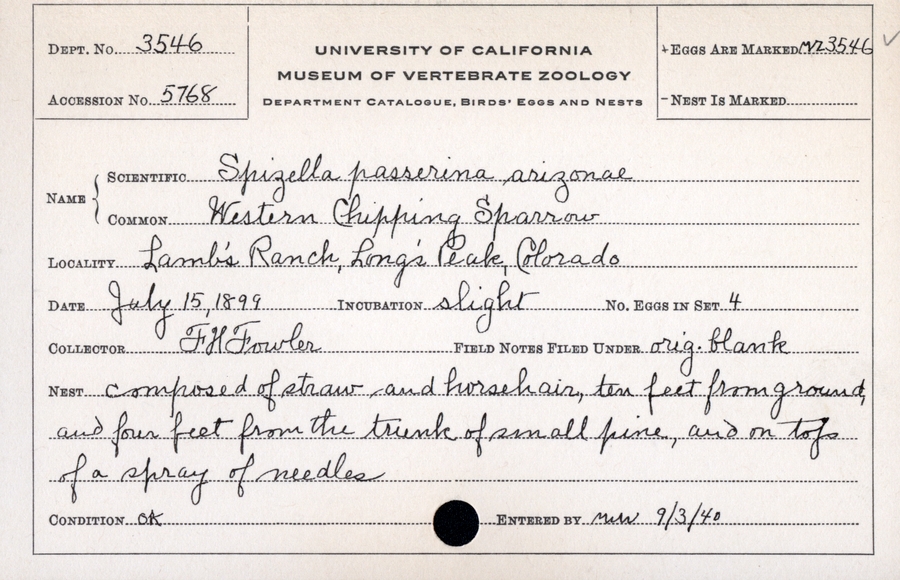 Dept. No. 3546
Accession No. 5768
UNIVERSITY OF CALIFORNIA
MUSEUM OF VERTEBRATE ZOOLOGY
Department Catalogue, Birds' Eggs and Nests
+ Eggs Are Marked MVZ3546 ✓
- Nest Is Marked
Name { Scientific Spizella passerina arizonae
Common Western Chipping Sparrow
Locality Lamb's Ranch, Long's Peak, Colorado
Date July 15, 1899 Incubation slight No. Eggs in Set 4
Collector FHFowler Field Notes Filed Under orig. blank
Nest composed of straw and horsehair, ten feet from ground,
and four feet from the trunk of small pine, and on top
of a spray of needles
Condition OK Entered by 9/3/40